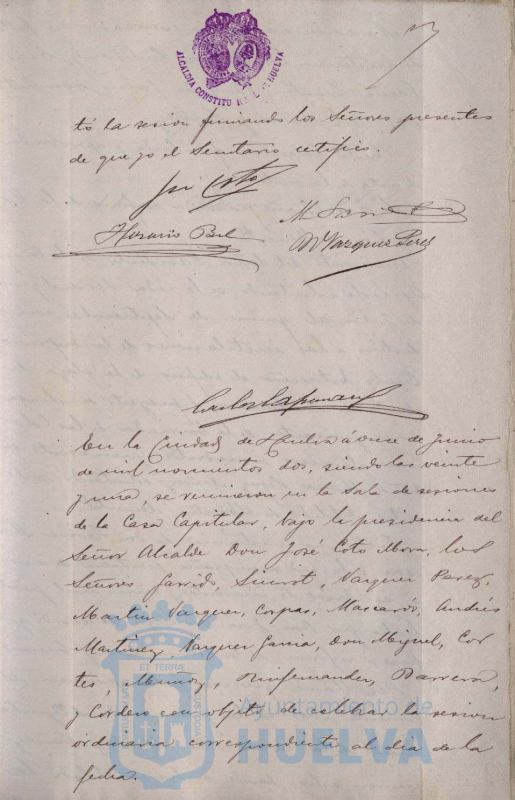 ALCALDIA CONSTITU HUELVA
tó la sesion firmando los Señores presentes
de que yo el Secretario certifico.
José Coto
Horacio Bel
M. 
M Vazquez Perez
En la Ciudad de Huelva á once de Junio
de mil novecientos dos, siendo las veinte
y una, se reunieron en la Sala de sesiones
de la Casa Capitular, bajo la presidencia del
Señor Alcalde Don José Coto Mora, los
Señores Garrido, Vazquez Perez,
Martin Vazquez, Corpas, Mascarós, Andrés
Martinez, Vazquez Garcia, Don Miguel, Cor
tes, Muñoz, Barrera,
y Cordero con objeto de celebrar la sesion
ordinaria correspondiente al dia de la
fecha.
Ayuntamiento de
HUELVA